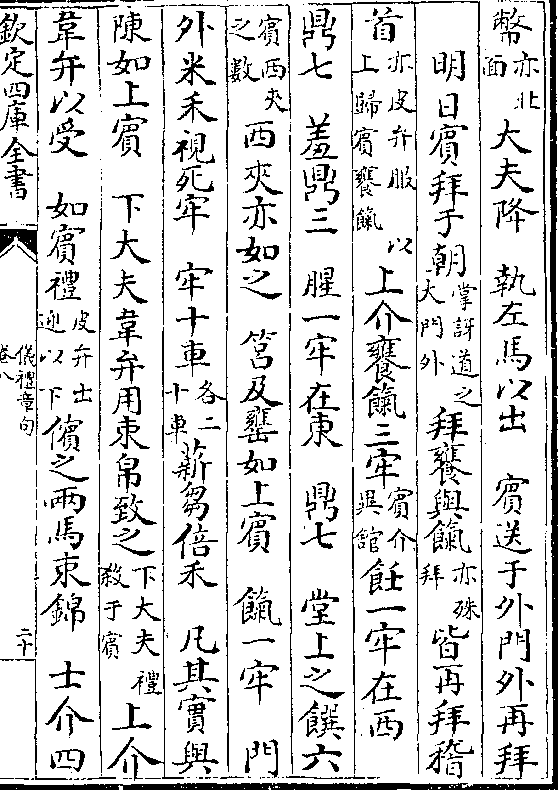 幣亦北面大夫降 執左馬以出 賓送于外門外再拜
明日賓拜于朝掌訝道之大門外拜饔與餼亦殊拜皆再拜稽
首亦皮弁服以上歸賓饔餼上介饔餼三牢賓介異館飪一牢在西
鼎七 羞鼎三 腥一牢在東 鼎七 堂上之饌六
賓西夾之數西夾亦如之 筥及罋如上賓 餼一牢 門
外米禾視死牢 牢十車各二十車薪芻倍禾 凡其實與
陳如上賓 下大夫韋弁用束帛致之下大夫禮殺于賓上介
韋弁以受 如賓禮皮弁出迎以下儐之兩馬束錦 士介四
欽定四庫全書
儀禮章句
卷八
二十